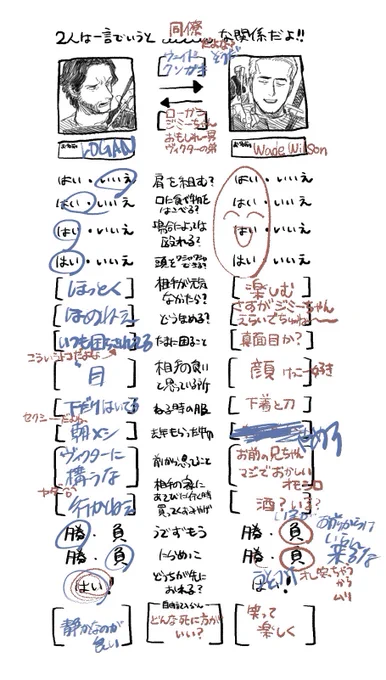 2人は一言でいうと 同僚 な関係だよ!!
だよな? そうだ
ウェイド
クソガキ
ローガン
ジミーちゃん
おもしれー男
ヴィクターの弟
お名前 LOGAN
お名前 Wade Wilson
はい・いいえ 肩を組む? はい・いいえ
はい・いいえ 口に食べ物をはこべる? はい・いいえ
はい・いいえ 場合によっては殴れる? はい・いいえ
はい・いいえ 頭をワシャワシャできる? はい・いいえ
ほっとく 相手が元気なかったら? 楽しむ
ほめねェ どうほめる? さすがジミーちゃん
えらいでちゅね〜
いつも困らされてる たまに困ること 真面目か?
こういうトコだよな
目 相手の良いと思っている所 顔 けっこー好き
下だけはいてる ねる時の服 下着と刀
セクシーだよね
朝メシ 去年もらった物
ヴィクターに
構うな 前から思ってたこと お前の兄ちゃん
マジでおかしい
オモシロ
行かねェ 相手の家にあそびに行く時買ってくおみやげ 酒?いる?
ヤダーっ
お前から
いらん
来るな
勝・負 うでずもう 勝・負
勝・負 にらめっこ 勝・負
はい! どっちが先におれる? はい!
オレ死なちゃうから
ムリ
静かなのが
良い 自由記入らん
どんな死に方が
いい? 笑って
楽しく